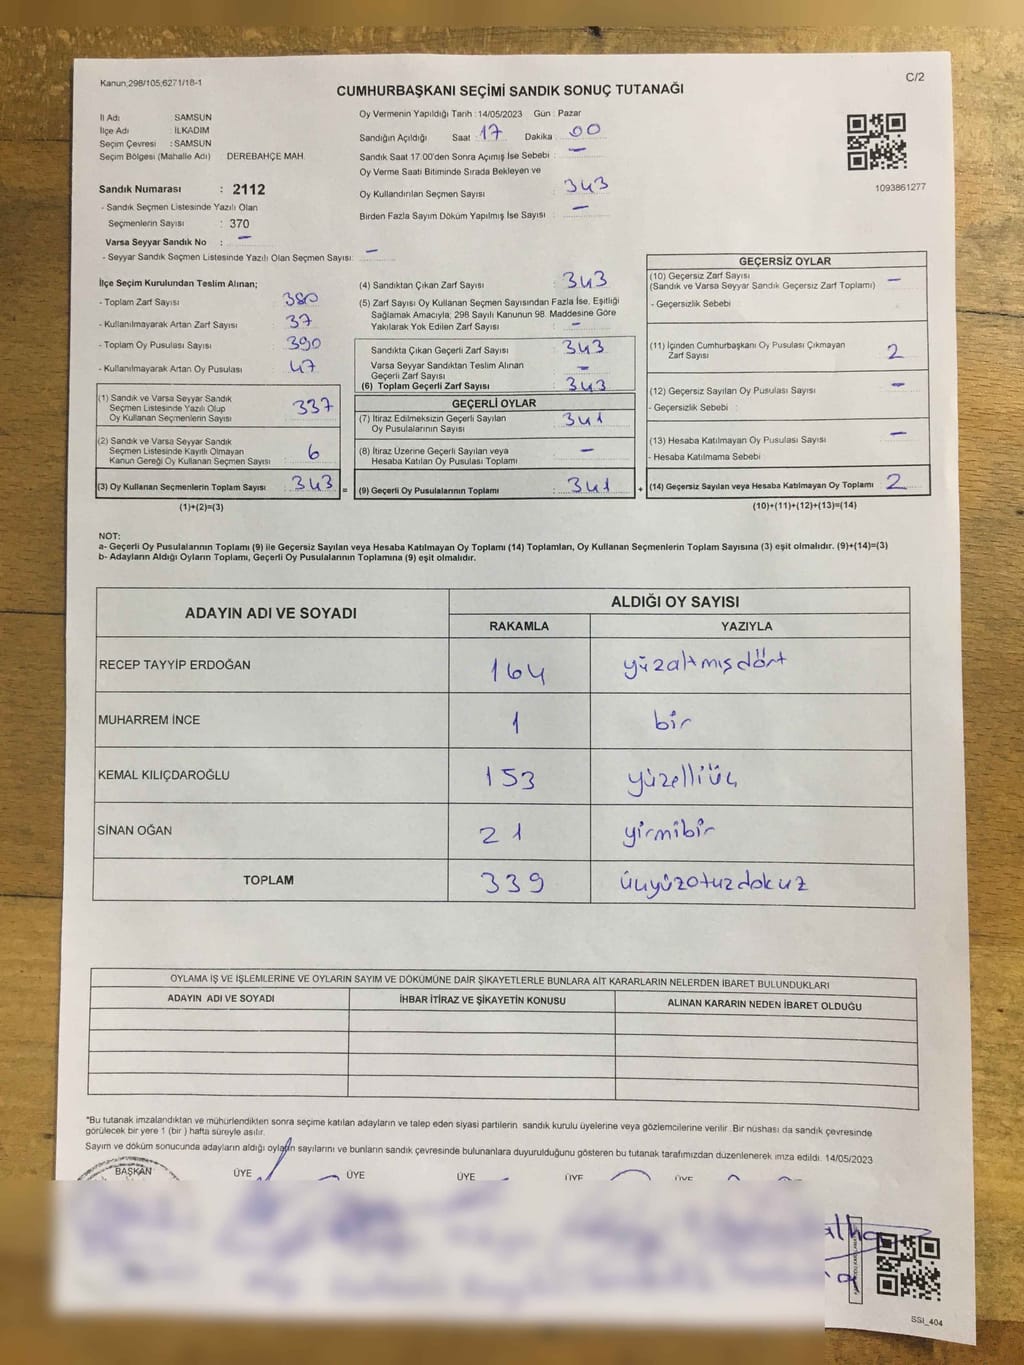 Kanun,298/105,6271/18-1
C/2
CUMHURBAŞKANI SEÇİMİ SANDIK SONUÇ TUTANAĞI
İl Adı SAMSUN
İlçe Adı : İLKADIM
Seçim Çevresi : SAMSUN
Seçim Bölgesi (Mahalle Adı) DEREBAHÇE MAH.
Sandık Numarası : 2112
- Sandık Seçmen Listesinde Yazılı Olan
Seçmenlerin Sayısı : 370
Varsa Seyyar Sandık No : -
- Seyyar Sandık Seçmen Listesinde Yazılı Olan Seçmen Sayısı: -
Oy Vermenin Yapıldığı Tarih : 14/05/2023 Gün : Pazar
Sandığın Açıldığı Saat 17 Dakika : 00
Sandık Saat 17.00'den Sonra Açımış İse Sebebi : -
Oy Verme Saati Bitiminde Sırada Bekleyen ve
Oy Kullandırılan Seçmen Sayısı : 343
Birden Fazla Sayım Döküm Yapılmış İse Sayısı : -
1093861277
İlçe Seçim Kurulundan Teslim Alınan;
- Toplam Zarf Sayısı : 380
- Kullanılmayarak Artan Zarf Sayısı : 37
- Toplam Oy Pusulası Sayısı : 390
- Kullanılmayarak Artan Oy Pusulası : 47
(1) Sandık ve Varsa Seyyar Sandık
Seçmen Listesinde Yazılı Olup
Oy Kullanan Seçmenlerin Sayısı : 337
(2) Sandık ve Varsa Seyyar Sandık
Seçmen Listesinde Kayıtlı Olmayan
Kanun Gereği Oy Kullanan Seçmen Sayısı : 6
(3) Oy Kullanan Seçmenlerin Toplam Sayısı : 343 =
(1)+(2)=(3)
(4) Sandıktan Çıkan Zarf Sayısı : 343
(5) Zarf Sayısı Oy Kullanan Seçmen Sayısından Fazla İse, Eşitliği
Sağlamak Amacıyla; 298 Sayılı Kanunun 98. Maddesine Göre
Yakılarak Yok Edilen Zarf Sayısı : -
Sandıkta Çıkan Geçerli Zarf Sayısı : 343
Varsa Seyyar Sandıktan Teslim Alınan
Geçerli Zarf Sayısı : -
(6) Toplam Geçerli Zarf Sayısı : 343
GEÇERLİ OYLAR
(7) İtiraz Edilmeksizin Geçerli Sayılan
Oy Pusulalarının Sayısı : 341
(8) İtiraz Üzerine Geçerli Sayılan veya
Hesaba Katılan Oy Pusulası Toplamı : -
(9) Geçerli Oy Pusulalarının Toplamı : 341 +
GEÇERSİZ OYLAR
(10) Geçersiz Zarf Sayısı
(Sandık ve Varsa Seyyar Sandık Geçersiz Zarf Toplamı) : -
- Geçersizlik Sebebi :
(11) İçinden Cumhurbaşkanı Oy Pusulası Çıkmayan
Zarf Sayısı : 2
(12) Geçersiz Sayılan Oy Pusulası Sayısı : -
- Geçersizlik Sebebi :
(13) Hesaba Katılmayan Oy Pusulası Sayısı : -
- Hesaba Katılmama Sebebi
(14) Geçersiz Sayılan veya Hesaba Katılmayan Oy Toplamı 2
(10)+(11)+(12)+(13)=(14)
NOT:
a- Geçerli Oy Pusulalarının Toplamı (9) ile Geçersiz Sayılan veya Hesaba Katılmayan Oy Toplamı (14) Toplamları, Oy Kullanan Seçmenlerin Toplam Sayısına (3) eşit olmalıdır. (9)+(14)=(3)
b- Adayların Aldığı Oyların Toplamı, Geçerli Oy Pusulalarının Toplamına (9) eşit olmalıdır.
ADAYIN ADI VE SOYADI ALDIĞI OY SAYISI
RAKAMLA YAZIYLA
RECEP TAYYİP ERDOĞAN 164 yüzaltmışdört
MUHARREM İNCE 1 bir
KEMAL KILIÇDAROĞLU 153 yüzelliüç
SİNAN OĞAN 21 yirmibir
TOPLAM 339 üçyüzotuzdokuz
OYLAMA İŞ VE İŞLEMLERİNE VE OYLARIN SAYIM VE DÖKÜMÜNE DAİR ŞİKAYETLERLE BUNLARA AİT KARARLARIN NELERDEN İBARET BULUNDUKLARI
ADAYIN ADI VE SOYADI İHBAR İTİRAZ VE ŞİKAYETİN KONUSU ALINAN KARARIN NEDEN İBARET OLDUĞU
*Bu tutanak imzalandıktan ve mühürlendikten sonra seçime katılan adayların ve talep eden siyasi partilerin sandık kurulu üyelerine veya gözlemcilerine verilir. Bir nüshası da sandık çevresinde
görülecek bir yere 1 (bir) hafta süreyle asılır.
Sayım ve döküm sonucunda adayların aldığı oyların sayılarını ve bunların sandık çevresinde bulunanlara duyurulduğunu gösteren bu tutanak tarafımızdan düzenlenerek imza edildi. 14/05/2023
BAŞKAN ÜYE ÜYE ÜYE ÜYE ÜYE
SSI_404